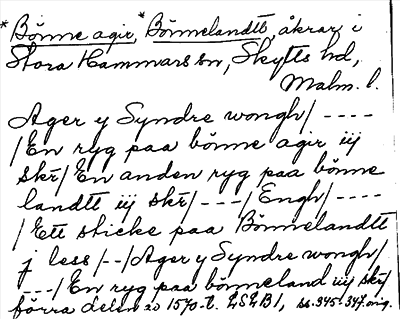 *Bönne agir, *Bönnelandtt, åkrar i
Stora Hammars sn, Skytts hd,
Malm. l.
Ager y Syndre wongh/ ----
/En ryg paa bönne agir iij
skr/ En anden ryg paa bönne
landtt iij skr/ ---/ Engh/ ----
/ Ett sticke paa Bönnelandtt
j less /--/ Ager y Syndre wongh/
---/ En ryg paa bönneland iij skr/
förra delen av 1570-t. LSLB1, ss. 345. 347. orig.